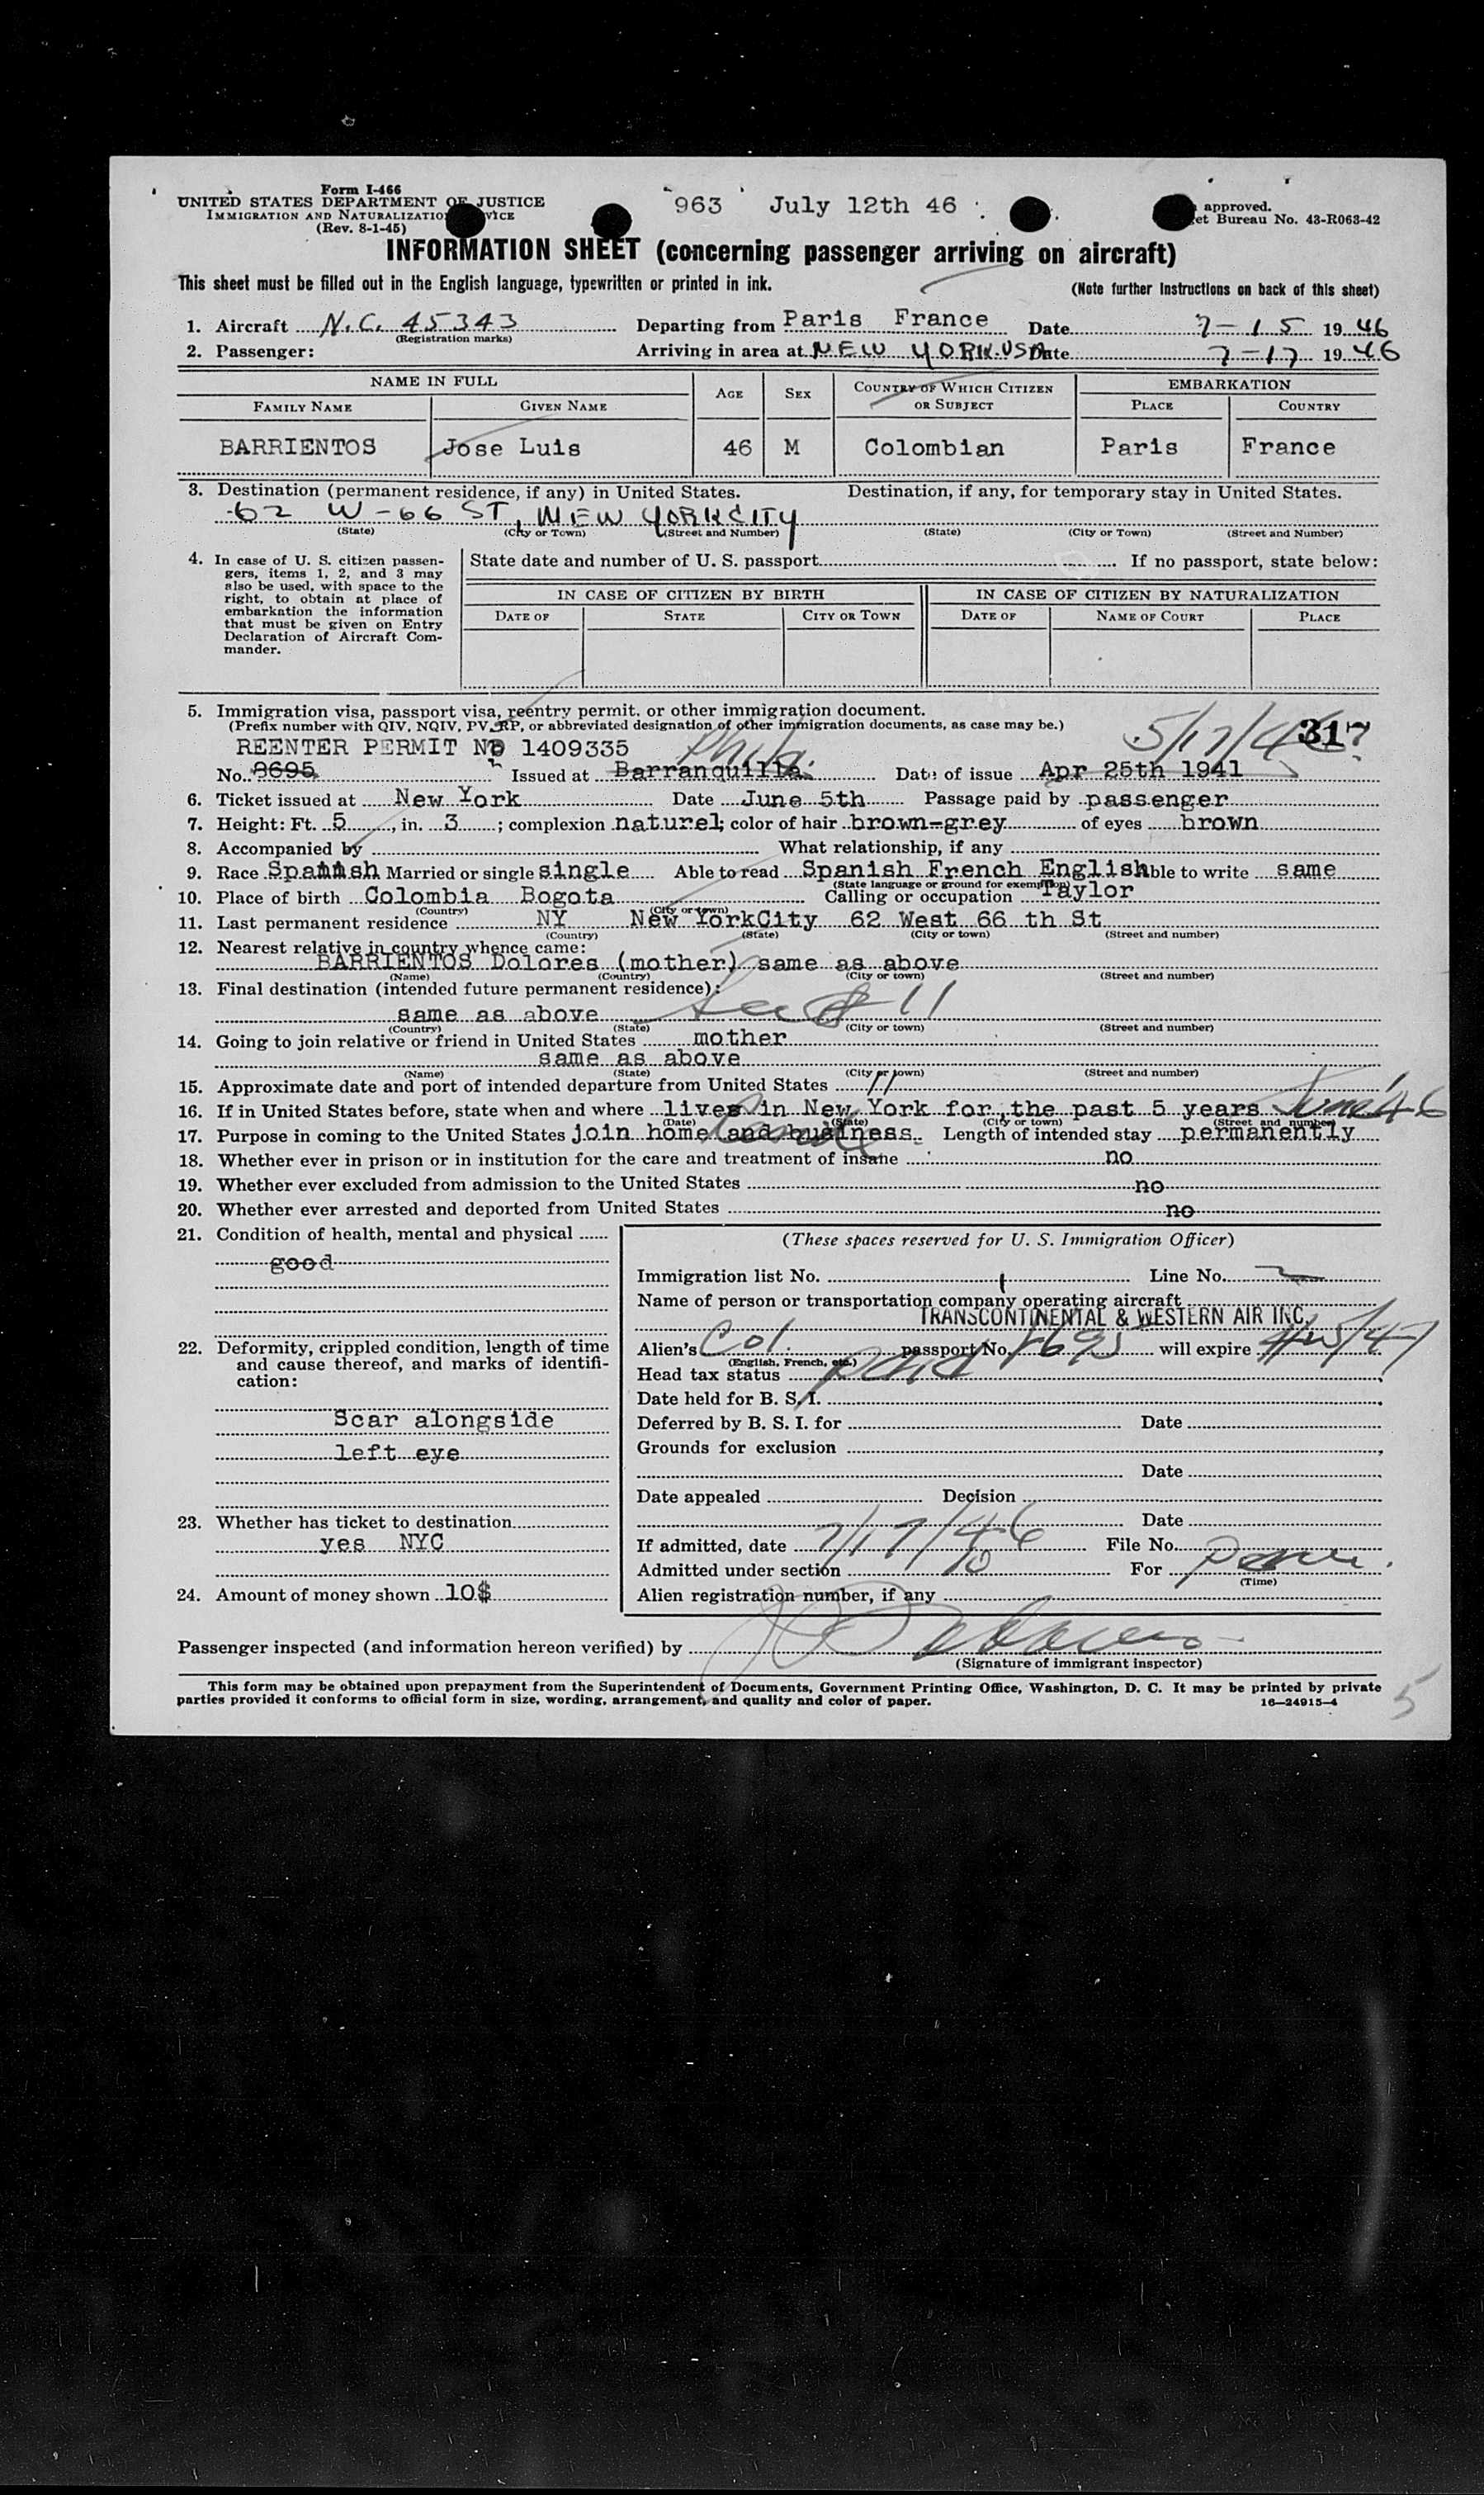 Form I-466
UNITED STATES DEPARTMENT OF JUSTICE
IMMIGRATION AND NATURALIZATION
(Rev. 8-1-45)
963 July 12th 46
approved.
Bureau No. 43-R063-42
INFORMATION SHEET (concerning passenger arriving on aircraft)
This sheet must be filled out in the English language, typewritten or printed in ink.
(Note further instructions on back of this sheet)
1. Aircraft N.C. 45343 Departing from Paris France Date 7-15 1946
(Registration marks)
2. Passenger: Arriving in area at NEW YORK.USA Date 7-17 1946
NAME IN FULL AGE SEX COUNTRY OF WHICH CITIZEN OR SUBJECT EMBARKATION
FAMILY NAME GIVEN NAME PLACE COUNTRY
BARRIENTOS Jose Luis 46 M Colombian Paris France
3. Destination (permanent residence, if any) in United States. Destination, if any, for temporary stay in United States.
62 W-66 ST, NEW YORK CITY
(State) (City or Town) (Street and Number) (State) (City or Town) (Street and Number)
4. In case of U. S. citizen passen-
gers, items 1, 2, and 3 may
also be used, with space to the
right, to obtain at place of
embarkation the information
that must be given on Entry
Declaration of Aircraft Com-
mander.
State date and number of U. S. passport If no passport, state below:
IN CASE OF CITIZEN BY BIRTH IN CASE OF CITIZEN BY NATURALIZATION
DATE OF STATE CITY OR TOWN DATE OF NAME OF COURT PLACE
5. Immigration visa, passport visa, reentry permit, or other immigration document.
(Prefix number with QIV, NQIV, PV, RP, or abbreviated designation of other immigration documents, as case may be.)
317
REENTER PERMIT NO 1409335 Phila.
No. 8695 Issued at Barranquilla Date of issue Apr 25th 1941
6. Ticket issued at New York Date June 5th Passage paid by passenger
7. Height: Ft. 5, in. 3; complexion naturel; color of hair brown-grey of eyes brown
8. Accompanied by What relationship, if any
9. Race Spanish Married or single single Able to read Spanish French English Able to write same
(State language or ground for exemption)
10. Place of birth Colombia Bogota Calling or occupation Taylor
(Country) (City or town)
11. Last permanent residence NY New YorkCity 62 West 66 th St
(Country) (State) (City or town) (Street and number)
12. Nearest relative in country whence came:
BARRIENTOS Dolores (mother) same as above
(Name) (Country) (City or town) (Street and number)
13. Final destination (intended future permanent residence):
same as above See # 11
(Country) (State) (City or town) (Street and number)
14. Going to join relative or friend in United States mother
same as above
(Name) (State) (City or town) (Street and number)
15. Approximate date and port of intended departure from United States
16. If in United States before, state when and where lives in New York for the past 5 years June 46
(Date) (State) (City or town) (Street and number)
17. Purpose in coming to the United States join home and business Length of intended stay permanently
18. Whether ever in prison or in institution for the care and treatment of insane no
19. Whether ever excluded from admission to the United States no
20. Whether ever arrested and deported from United States no
21. Condition of health, mental and physical
good
22. Deformity, crippled condition, length of time
and cause thereof, and marks of identifi-
cation:
Scar alongside
left eye
23. Whether has ticket to destination
yes NYC
24. Amount of money shown 10$
(These spaces reserved for U. S. Immigration Officer)
Immigration list No. 1 Line No. 2
Name of person or transportation company operating aircraft
TRANSCONTINENTAL & WESTERN AIR INC.
Alien's Col. passport No. 8695 will expire
(English, French, etc.)
Head tax status paid
Date held for B. S. I.
Deferred by B. S. I. for Date
Grounds for exclusion
Date
Date appealed Decision
Date
If admitted, date 7/17/46 File No.
Admitted under section For
(Time)
Alien registration number, if any
Passenger inspected (and information hereon verified) by
(Signature of immigrant inspector)
This form may be obtained upon prepayment from the Superintendent of Documents, Government Printing Office, Washington, D. C. It may be printed by private
parties provided it conforms to official form in size, wording, arrangement, and quality and color of paper.
16—24915-4
5